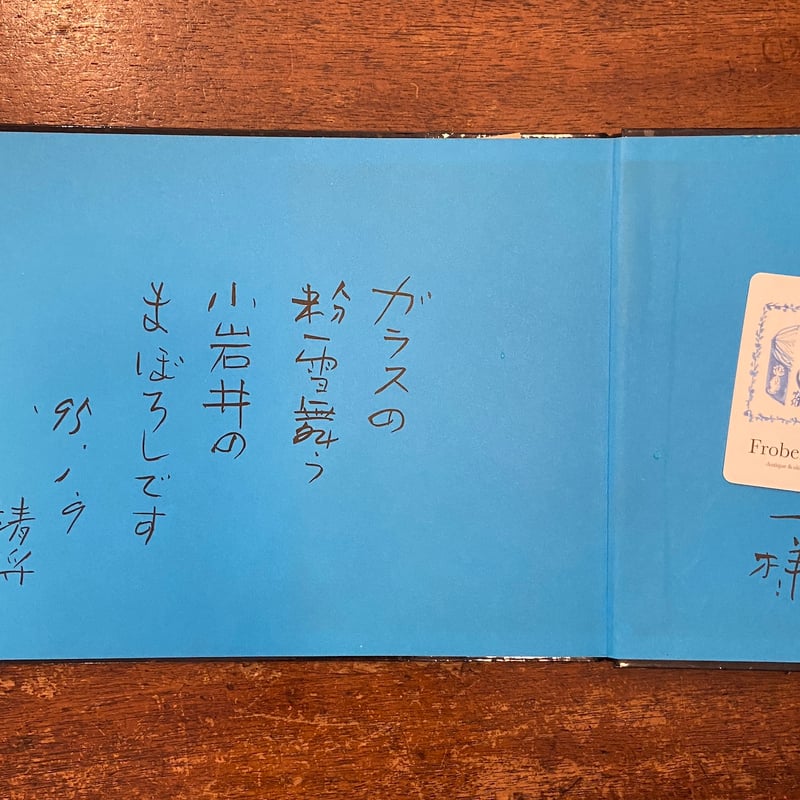 様
ガラスの
粉雪舞う
小岩井の
まぼろしです
'95.1.9
Frobe